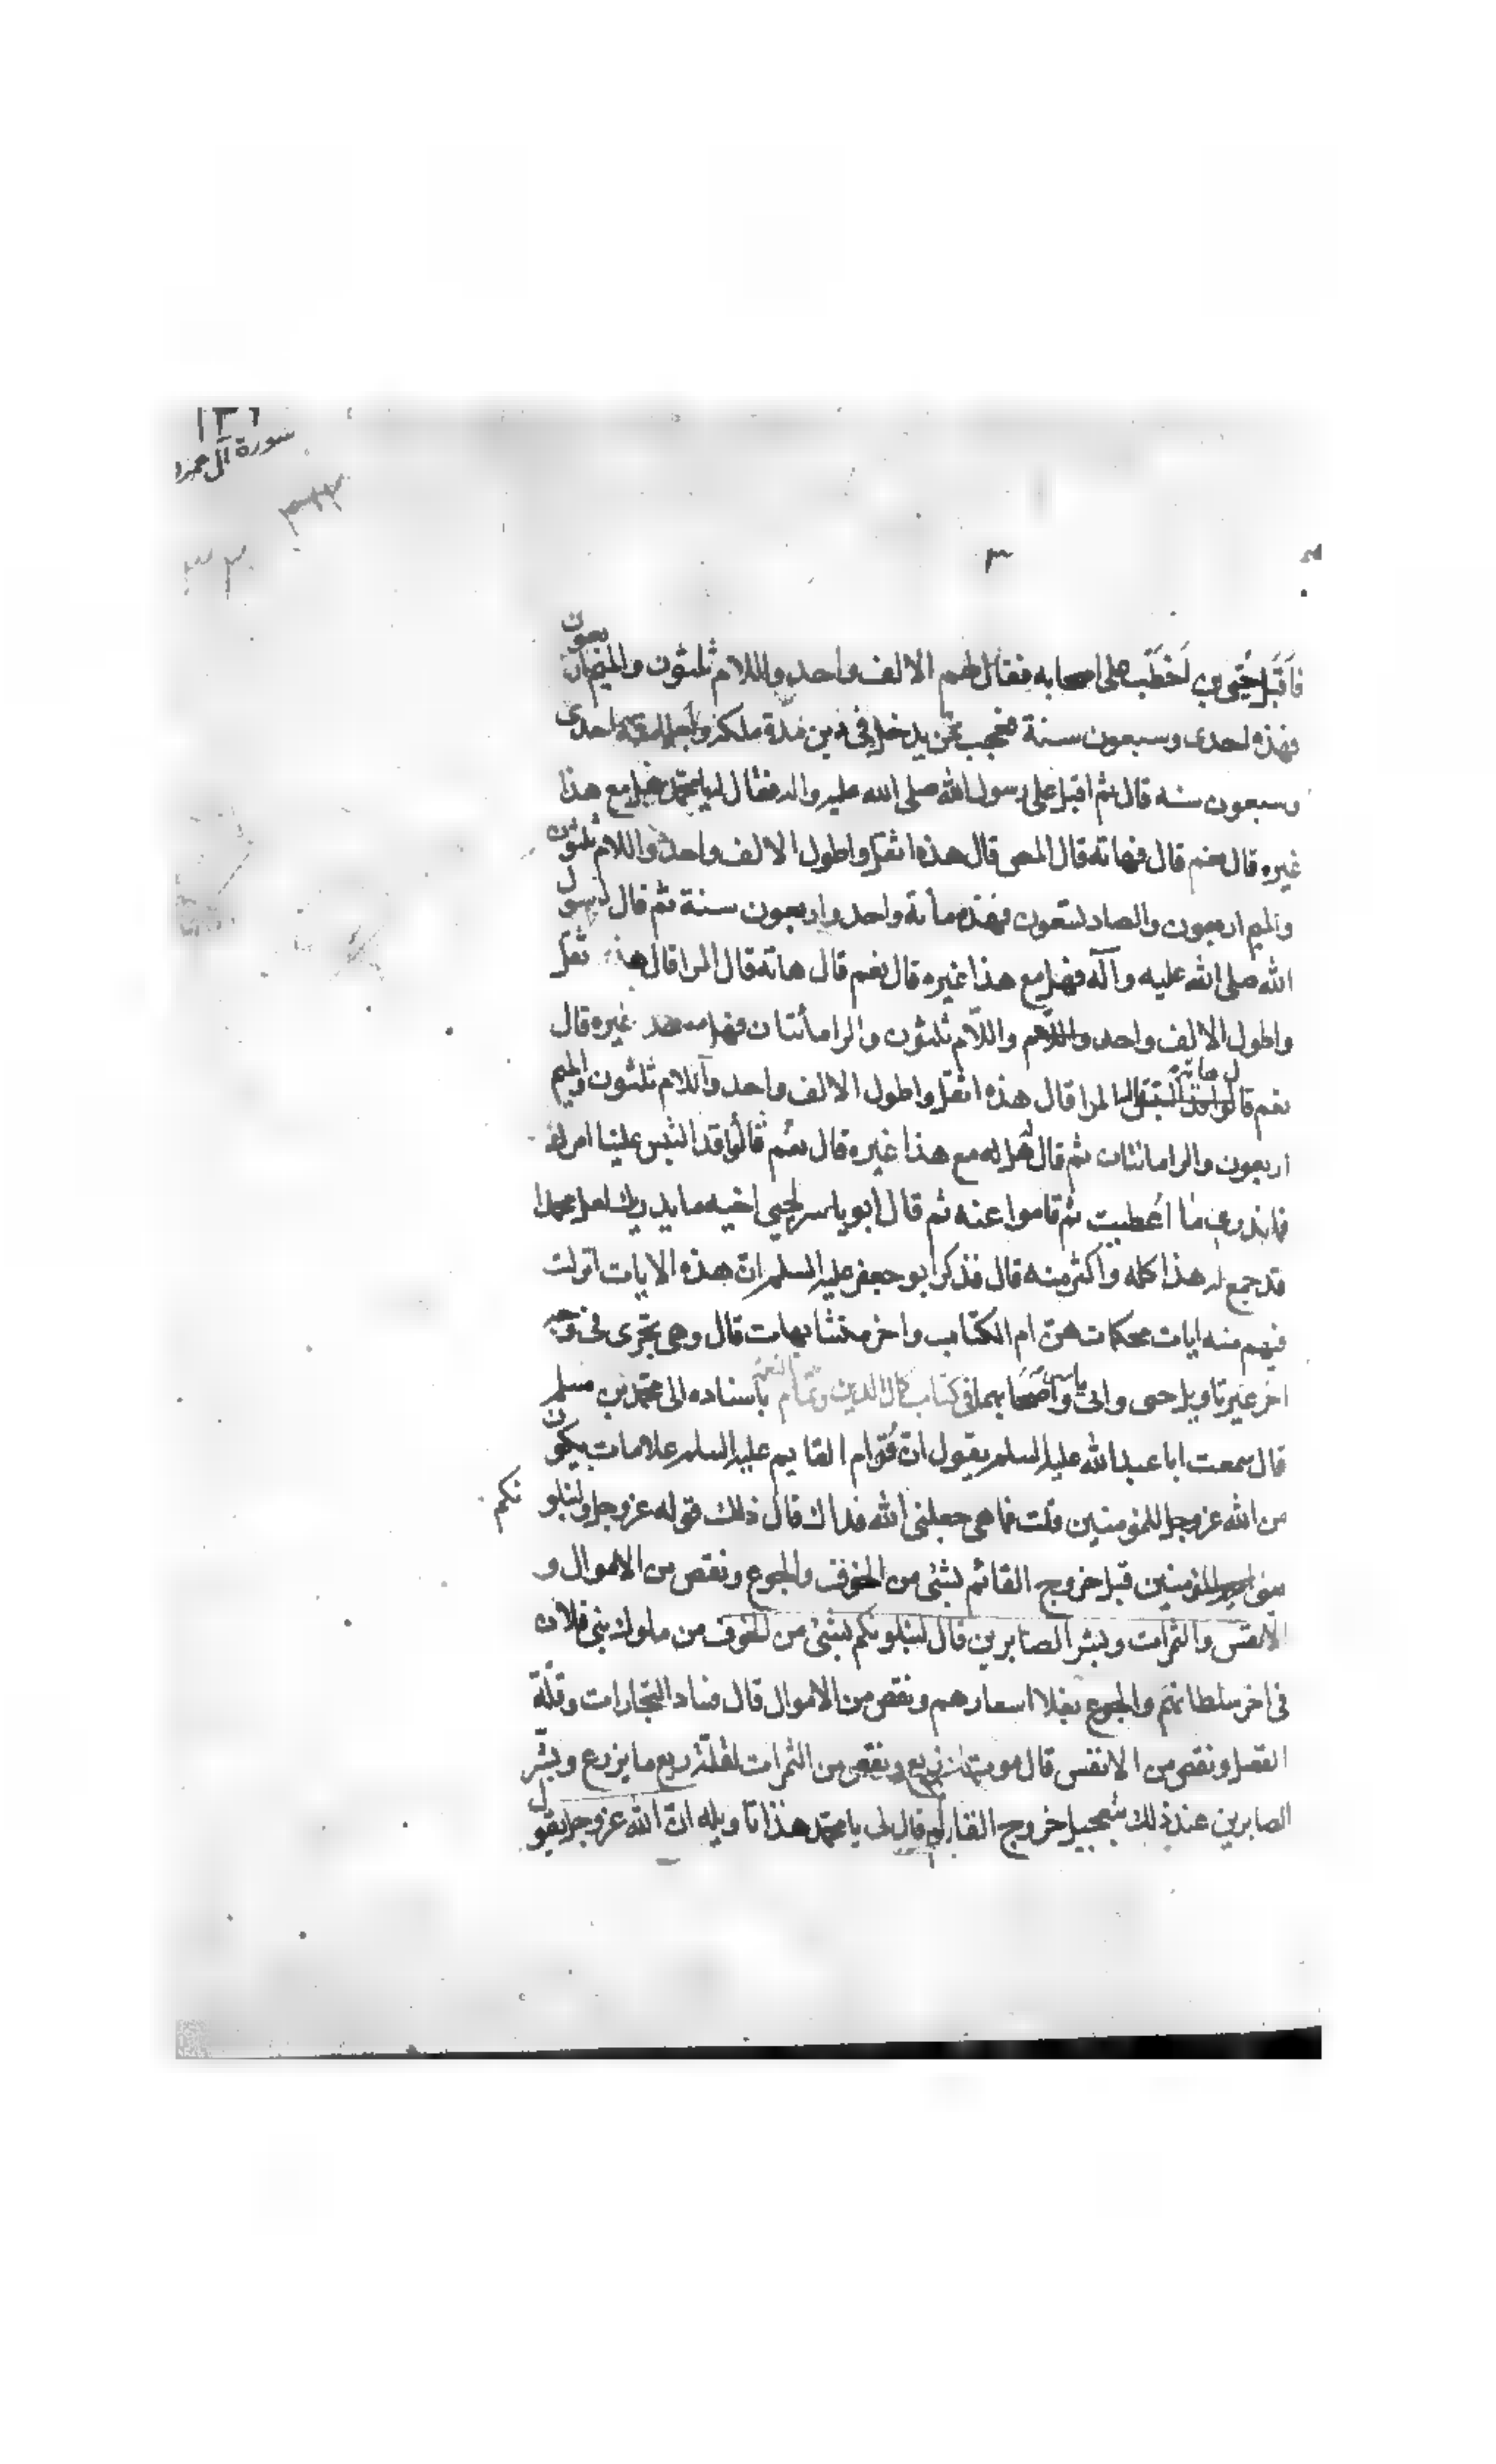 ١٣٦
سورة آل عمرا
فاقبل حيى بن اخطب على اصحابه فقال لهم الالف واحد واللام ثلثون والميم اربعون
فهذه احدى وسبعون سنة فعجب ممن يدخل في دين مدة ملكه واجل امته احدى
وسبعون سنه قال ثم اقبل على رسول الله صلى الله عليه واله فقال له يا محمد هل مع هذا
غيره قال نعم قال فهاته قال المص قال هذه اثقل واطول الالف واحد واللام ثلثون
والميم اربعون والصاد تسعون فهذه مائة واحد واربعون سنة ثم قال لرسول
الله صلى الله عليه وآله فهل مع هذا غيره قال نعم قال هاته قال الرا قال هذه اثقل
واطول الالف واحد واللام ثلثون والرا مأتان فهل مع هذا غيره قال
نعم قال هاته قال المرا قال هذه اثقل واطول الالف واحد واللام ثلثون والميم
اربعون والرا مائتان ثم قال له هل مع هذا غيره قال نعم قالوا قد التبس علينا امرك
فما ندري ما اعطيت ثم قاموا عنه ثم قال ابو ياسر لحيي اخيه ما يدريك لعل محمدا
قد جمع له هذا كله واكثر منه قال فذكر ابو جعفر عليه السلم ان هذه الايات انزلت
فيهم منه ايات محكمات هن ام الكتاب واخر متشابهات قال وهي تجرى في وجه
اخر غير تاويل حيى وابى ياسر واصحابهما في كتاب كمال الدين وتمام النعمة باسناده الى محمد بن مسلم
قال سمعت ابا عبد الله عليه السلم يقول ان قوام القايم عليه السلم علامات يكون
من الله عز وجل للمؤمنين قلت فما هي جعلني الله فداك قال ذلك قوله عز وجل ولنبلو
نكم
يعنى المؤمنين قبل خروج القائم بشئ من الخوف والجوع ونقص من الاموال و
الانفس والثمرات وبشر الصابرين قال لنبلونكم بشئ من الخوف من ملوك بنى فلان
فى اخر سلطانهم والجوع بغلا اسعارهم ونقص من الاموال قال فساد التجارات وقلة
الفضل ونقص من الانفس قال موت ذريع ونقص من الثمرات لقلة ريع ما يزرع وبشر
الصابرين عند ذلك بتعجيل خروج القايم ثم قال لى يا محمد هذا تاويله ان الله عز وجل يقول